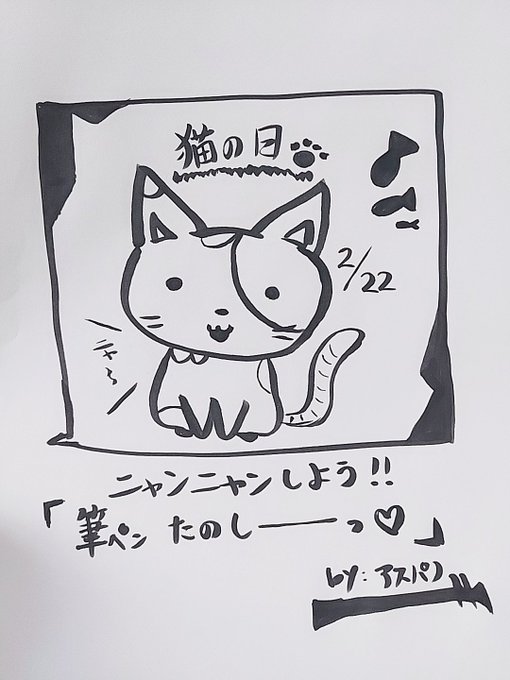 猫の日
2/22
ニャ〜
ニャンニャンしよう!!
「筆ペン たのしーーっ♡」
by: アスパラ